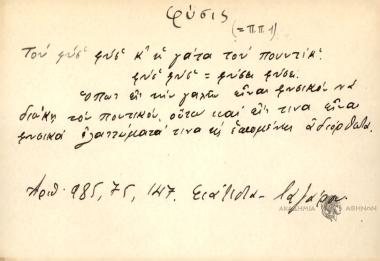 φύσις
(=ΠΠ 1)
Τού φύσ' φύσ' κ' κὴ γάτα τού πουντίκ'.
φύσ' φύσ' = φύσει φύσει.
Ὅπως εἰς τὴν γαλῆν εἶναι φυσικὸν νὰ
διώκῃ τὸν ποντικόν, οὕτω καὶ εἴς τινα εἶναι
φυσικὰ ἐλαττώματά τινα ὡς ἑπομένως ἀδιόρθωτα.
Ἀριθ. 985, 75, 147. Σιάτιστα - Λαζάρου
ΑΚΑΔΗΜΙΑ ΑΘΗΝΩΝ